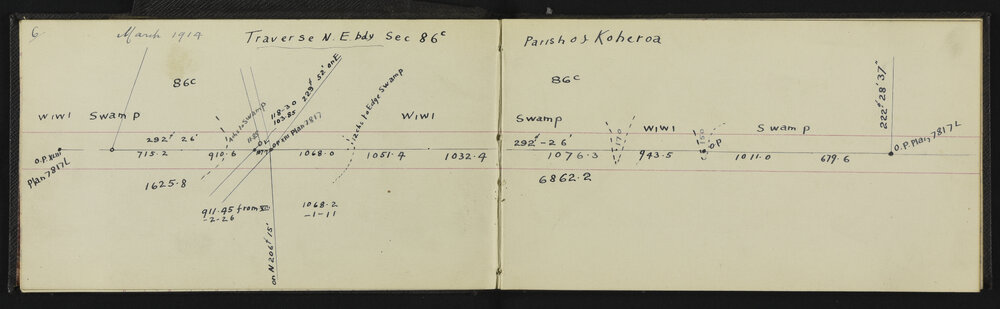 6
March 1914
Traverse N.E bdy Sec 86c
Parish of Koheroa
86c
86c
Wiwi Swamp
Wiwi
Swamp
Wiwi
Swamp
229° 52' on E
118-30
103.85
Edge Swamp
222° 28' 37"
292° 26'
292° - 26'
150
O.P
O.P. Plan 7817L
Plan 7817L
Plan 7817
715.2
910.6
1068.0
1051.4
1032.4
1076.3
943.5
1011.0
679.6
1625.8
6862.2
911.45 from
-2-26
1068.2
-1-11
on N 206° 15'